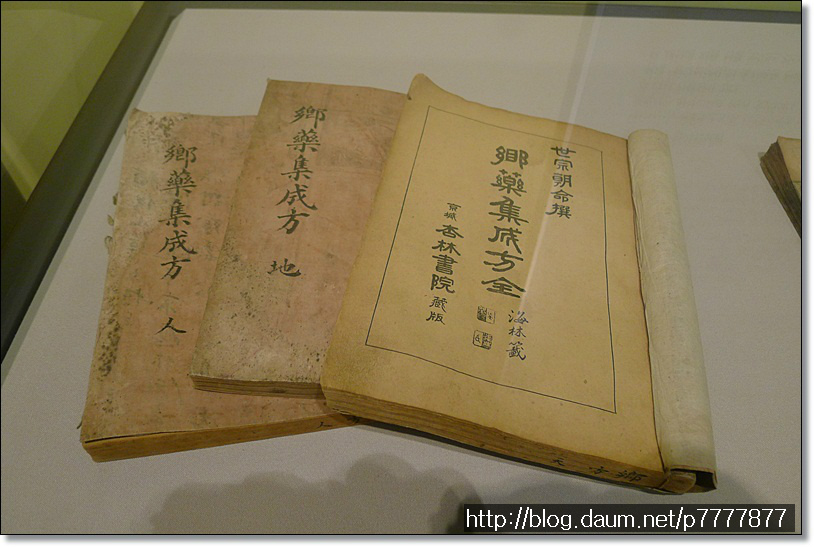 鄕藥集成方
人
鄕藥集成方
地
世宗朝命撰
鄕藥集成方全
京城 杏林書院 藏版
海林籤
http://blog.daum.net/p7777877